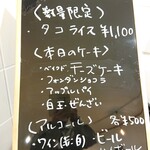 〈数量限定〉
・タコライス ¥1,100
〈本日のケーキ〉
・ベイクドチーズケーキ
・フォンダンショコラ
・アップルパイ
・白玉ぜんざい
〈アルコール〉 各¥500
・ワイン(赤・白)・ビール